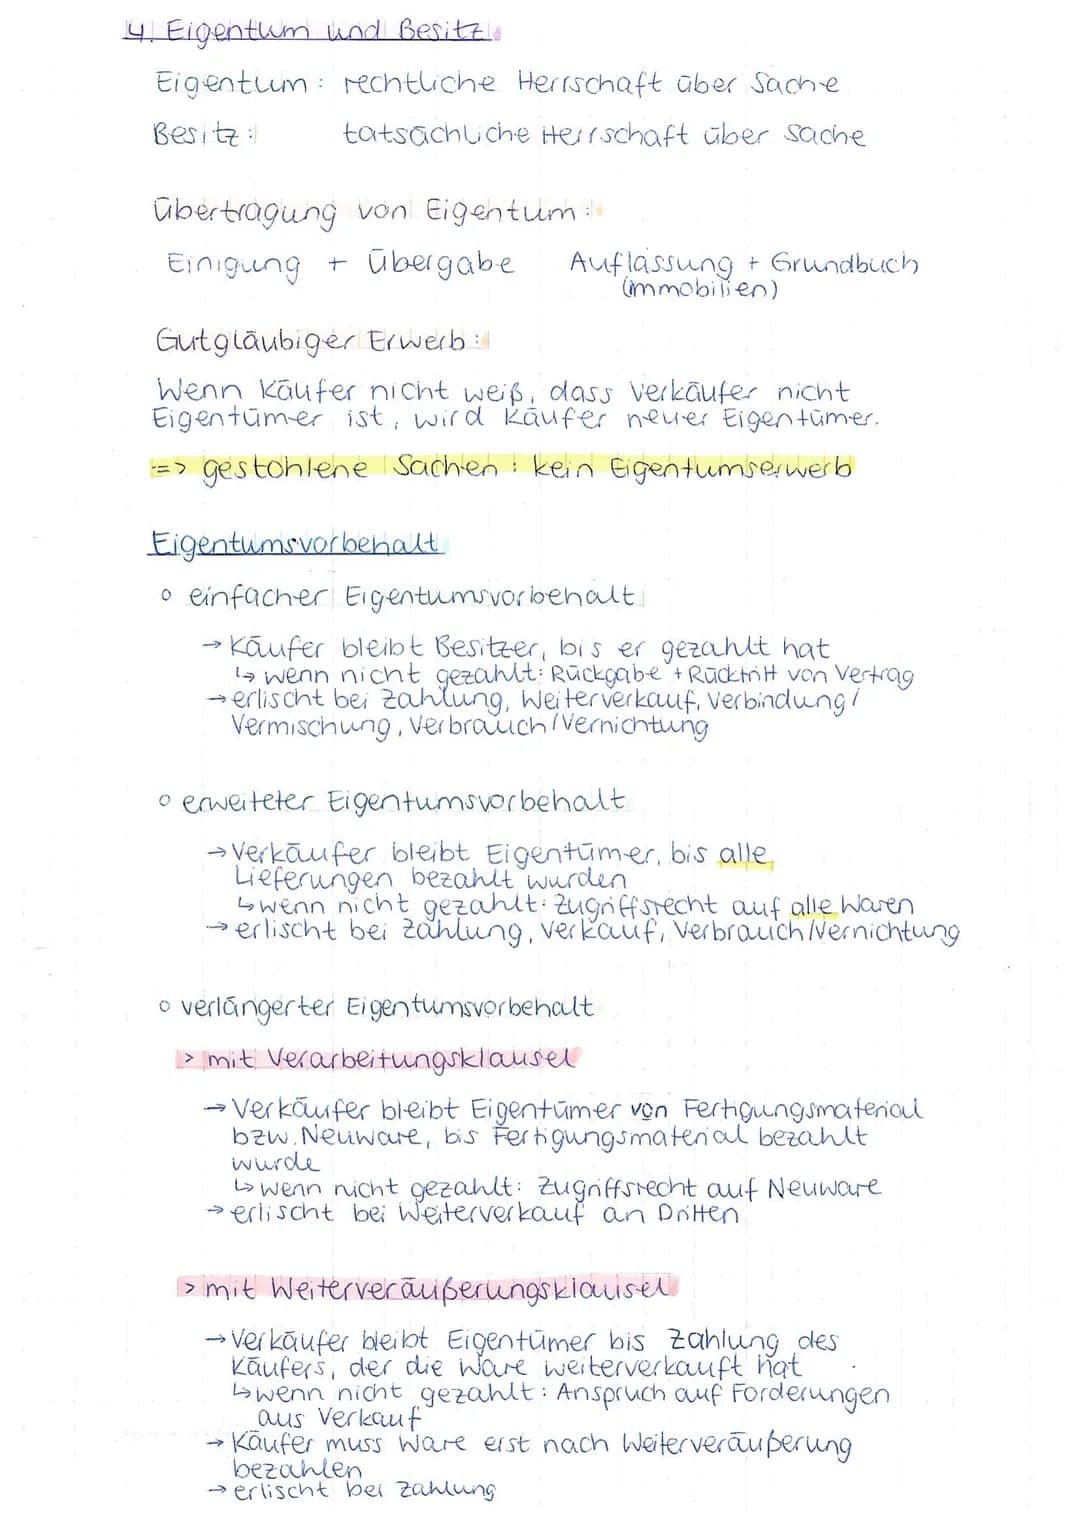 4. Eigentum und Besitz
Eigentum: rechtliche Herrschaft über Sache
Besitz: tatsächliche Herrschaft über Sache
Übertragung von Eigentum:
Einigung + Übergabe Auflassung + Grundbuch
(Immobilien)
Gutgläubiger Erwerb:
Wenn Käufer nicht weiß, dass Verkäufer nicht
Eigentümer ist, wird Käufer neuer Eigentümer.
=> gestohlene Sachen: kein Eigentumserwerb
Eigentumsvorbehalt
○ einfacher Eigentumsvorbehalt
→ Käufer bleibt Besitzer, bis er gezahlt hat
↳ wenn nicht gezahlt: Rückgabe + Rücktritt von Vertrag
→ erlischt bei Zahlung, Weiterverkauf, Verbindung/
Vermischung, Verbrauch/Vernichtung
○ erweiteter Eigentumsvorbehalt
→ Verkäufer bleibt Eigentümer, bis alle
Lieferungen bezahlt wurden
↳ wenn nicht gezahlt: Zugriffsrecht auf alle Waren
→ erlischt bei Zahlung, Verkauf, Verbrauch/Vernichtung
○ verlängerter Eigentumsvorbehalt
> mit Verarbeitungsklausel
→ Verkäufer bleibt Eigentümer von Fertigungsmaterial
bzw. Neuware, bis Fertigungsmaterial bezahlt
wurde
↳ wenn nicht gezahlt: Zugriffsrecht auf Neuware
→ erlischt bei Weiterverkauf an Dritten
> mit Weiterveräußerungsklausel
→ Verkäufer bleibt Eigentümer bis Zahlung des
Käufers, der die Ware weiterverkauft hat
↳ wenn nicht gezahlt: Anspruch auf Forderungen
aus Verkauf
→ Käufer muss Ware erst nach Weiterveräußerung
bezahlen
→ erlischt bei Zahlung